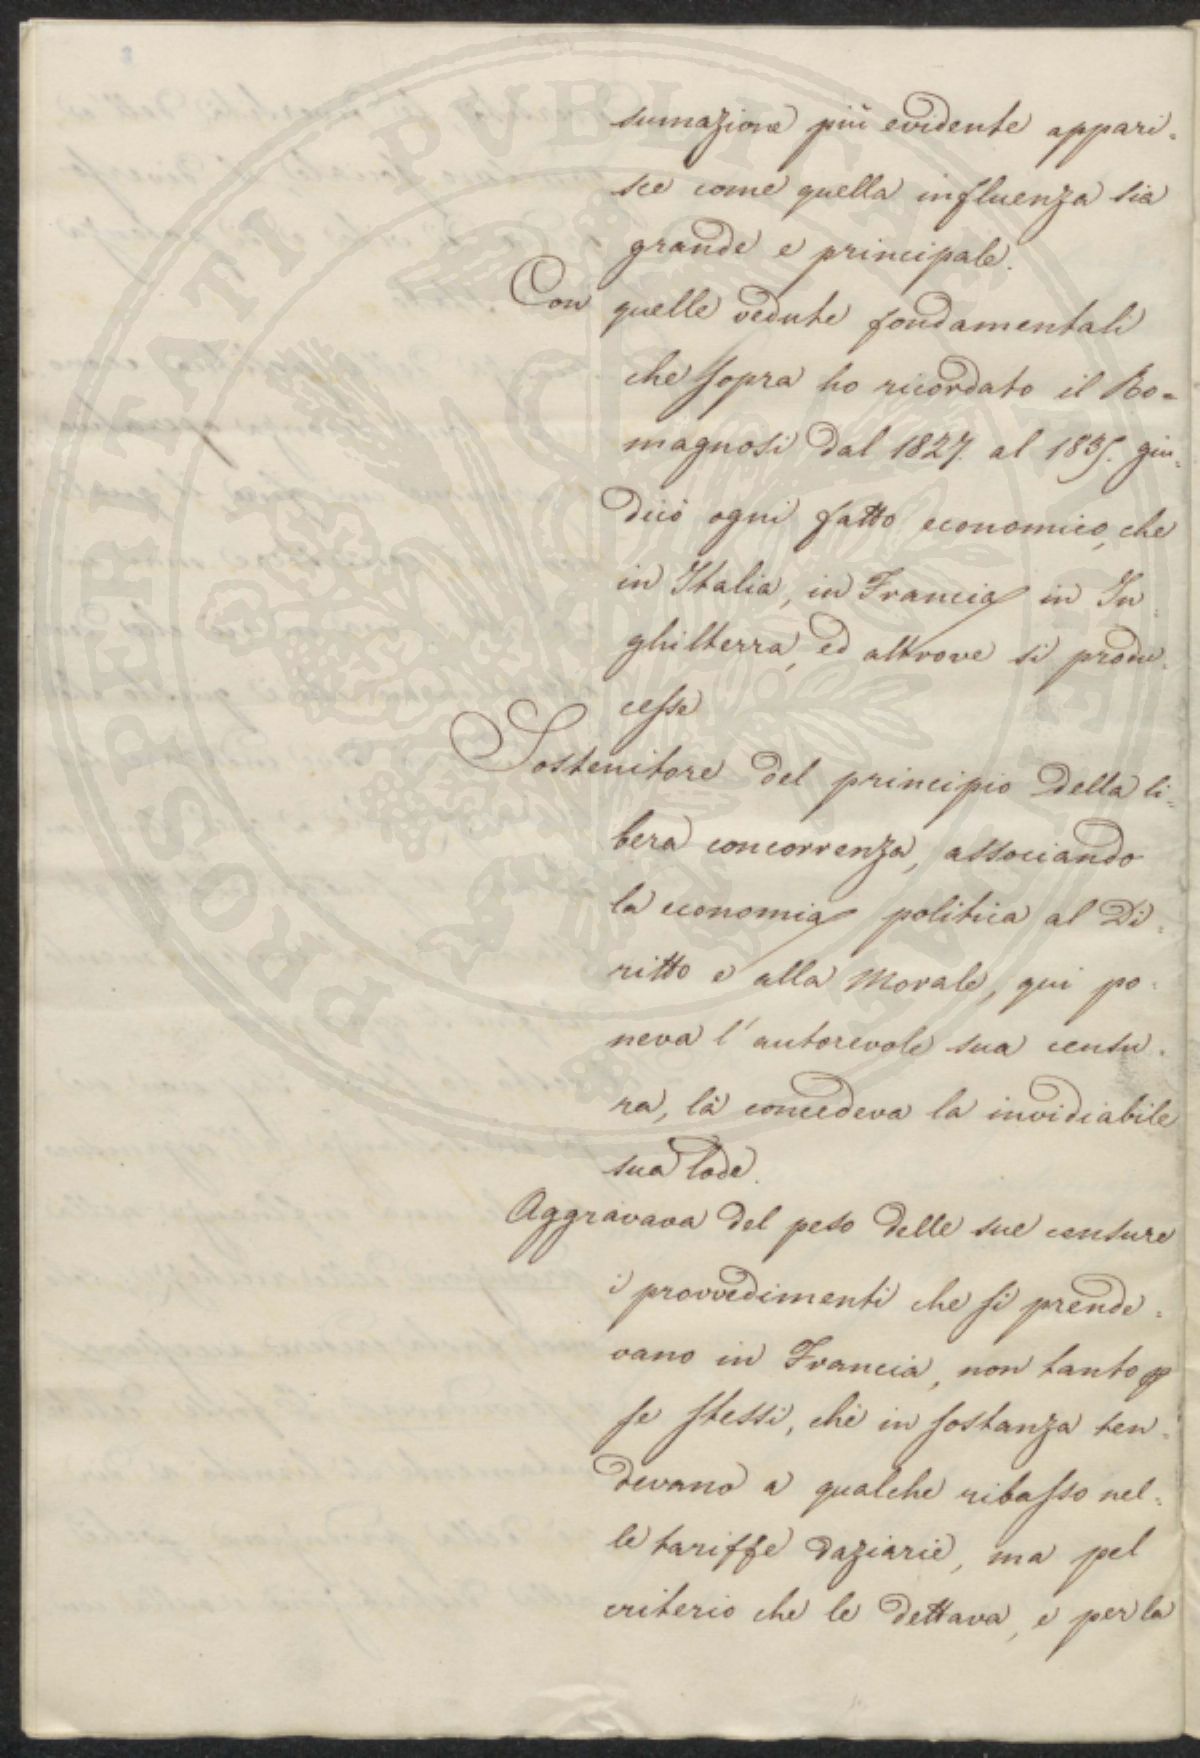 sumazione più evidente appari-
sce come quella influenza sia
grande e principale.
Con quelle vedute fondamentali
che sopra ho ricordato il Ro-
magnosi dal 1827. al 1835. giu-
dicò ogni fatto economico, che
in Italia, in Francia in In-
ghilterra, ed altrove si produ-
cesse
Sostenitore del principio della li-
bera concorrenza, associando
la economia politica al Di-
ritto e alla Morale, qui po-
neva l'autorevole sua censu-
ra, là concedeva la invidiabile
sua lode.
Aggravava del peso delle sue censure
i provvedimenti che si prende-
vano in Francia, non tanto p
se stessi, chè in sostanza ten-
devano a qualche ribasso nel-
le tariffe daziarie, ma pel
criterio che le dettava, e per la
PROSPERITATI PVBLICAE AVGENDAE